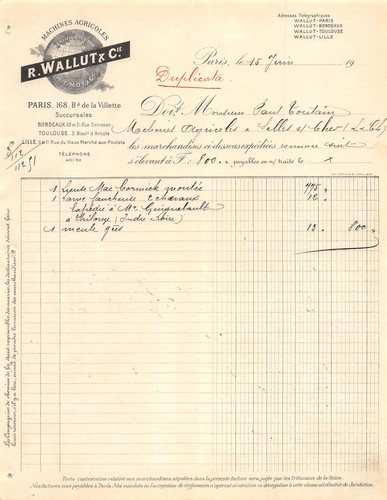 Adresses Télégraphiques
WALLUT-PARIS
WALLUT-BORDEAUX
WALLUT-TOULOUSE
WALLUT-LILLE
MACHINES AGRICOLES
R. WALLUT & Cie
Paris, le 15 Juin 19
Duplicata
PARIS, 168, Bd de la Villette
Succursales:
BORDEAUX
TOULOUSE, 3, Boulᵈ d'Arcole
LILLE, Rue du Vieux Marché-aux-Poulets
TÉLÉPHONE
Doit Monsieur Paul
Machines Agricoles à Selles s/ Cher (L. & Ch)
les marchandises ci-dessous expédiées comme suit
s'élevant à F: 800. » payables en s/ traite le
1 Lieuse Mac Cormick montée 775 »
1 Lame faucheuse 2 chevaux 12 »
Expédié à Mr
(Indre Loire)
1 meule grès 13 » 800 »
Toute contestation relative aux marchandises stipulées dans la présente facture sera jugée par les Tribunaux de la Seine.
Nos factures sont payables à Paris. Nos mandats ou l'acceptation de règlements n'opèrent ni novation ni dérogation à cette clause attributive de juridiction.